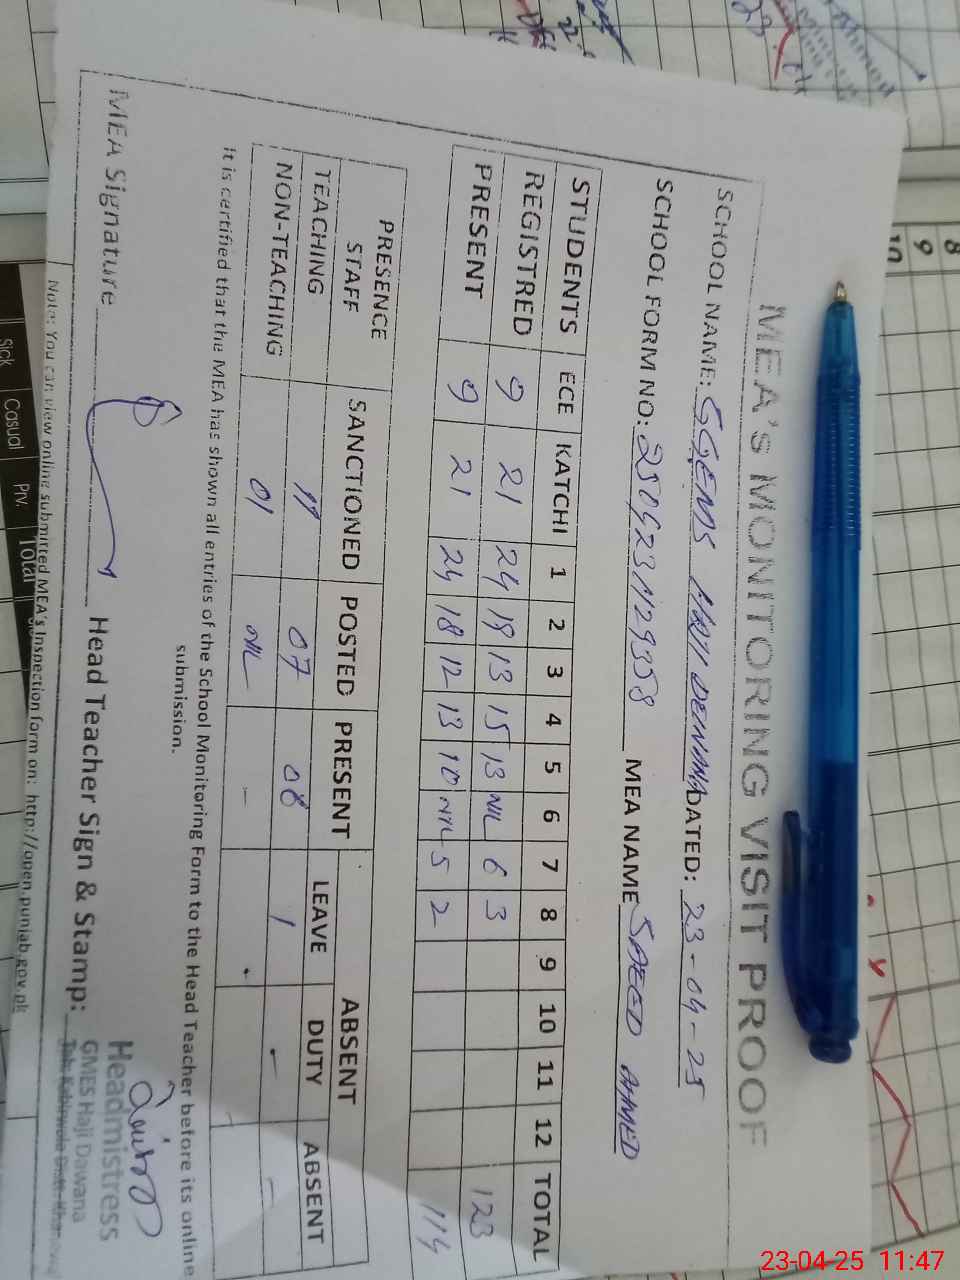 MEA's MONITORING VISIT PROOF
SCHOOL NAME: GGEMS HAJI DEWANA DATED: 23-04-25
SCHOOL FORM NO: MEA NAME SAEED AHMED
STUDENTS ECE KATCHI 1 2 3 4 5 6 7 8 9 10 11 12 TOTAL
REGISTRED 9 21 24 19 13 15 13 NIL 6 3 123
PRESENT 9 21 24 18 12 13 10 NIL 5 2 114
PRESENCE STAFF SANCTIONED POSTED PRESENT ABSENT
LEAVE DUTY ABSENT
TEACHING 11 07 06 1 - -
NON-TEACHING 01 NIL - . - -
It is certified that the MEA has shown all entries of the School Monitoring Form to the Head Teacher before its online
submission.
MEA Signature Head Teacher Sign & Stamp:
Headmistress
GMES Haji Dawana
Note: You can view online submitted MEA's Inspection form on: http://open.punjab.gov.pk
Sick Casual Prv. Total
8
9
10
23-04-25 11:47